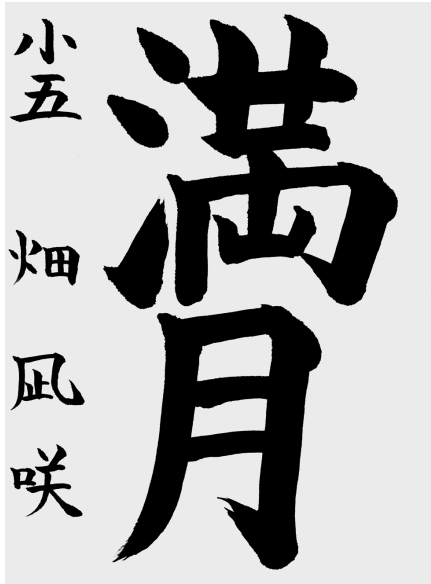 満月
小五 畑 凪咲